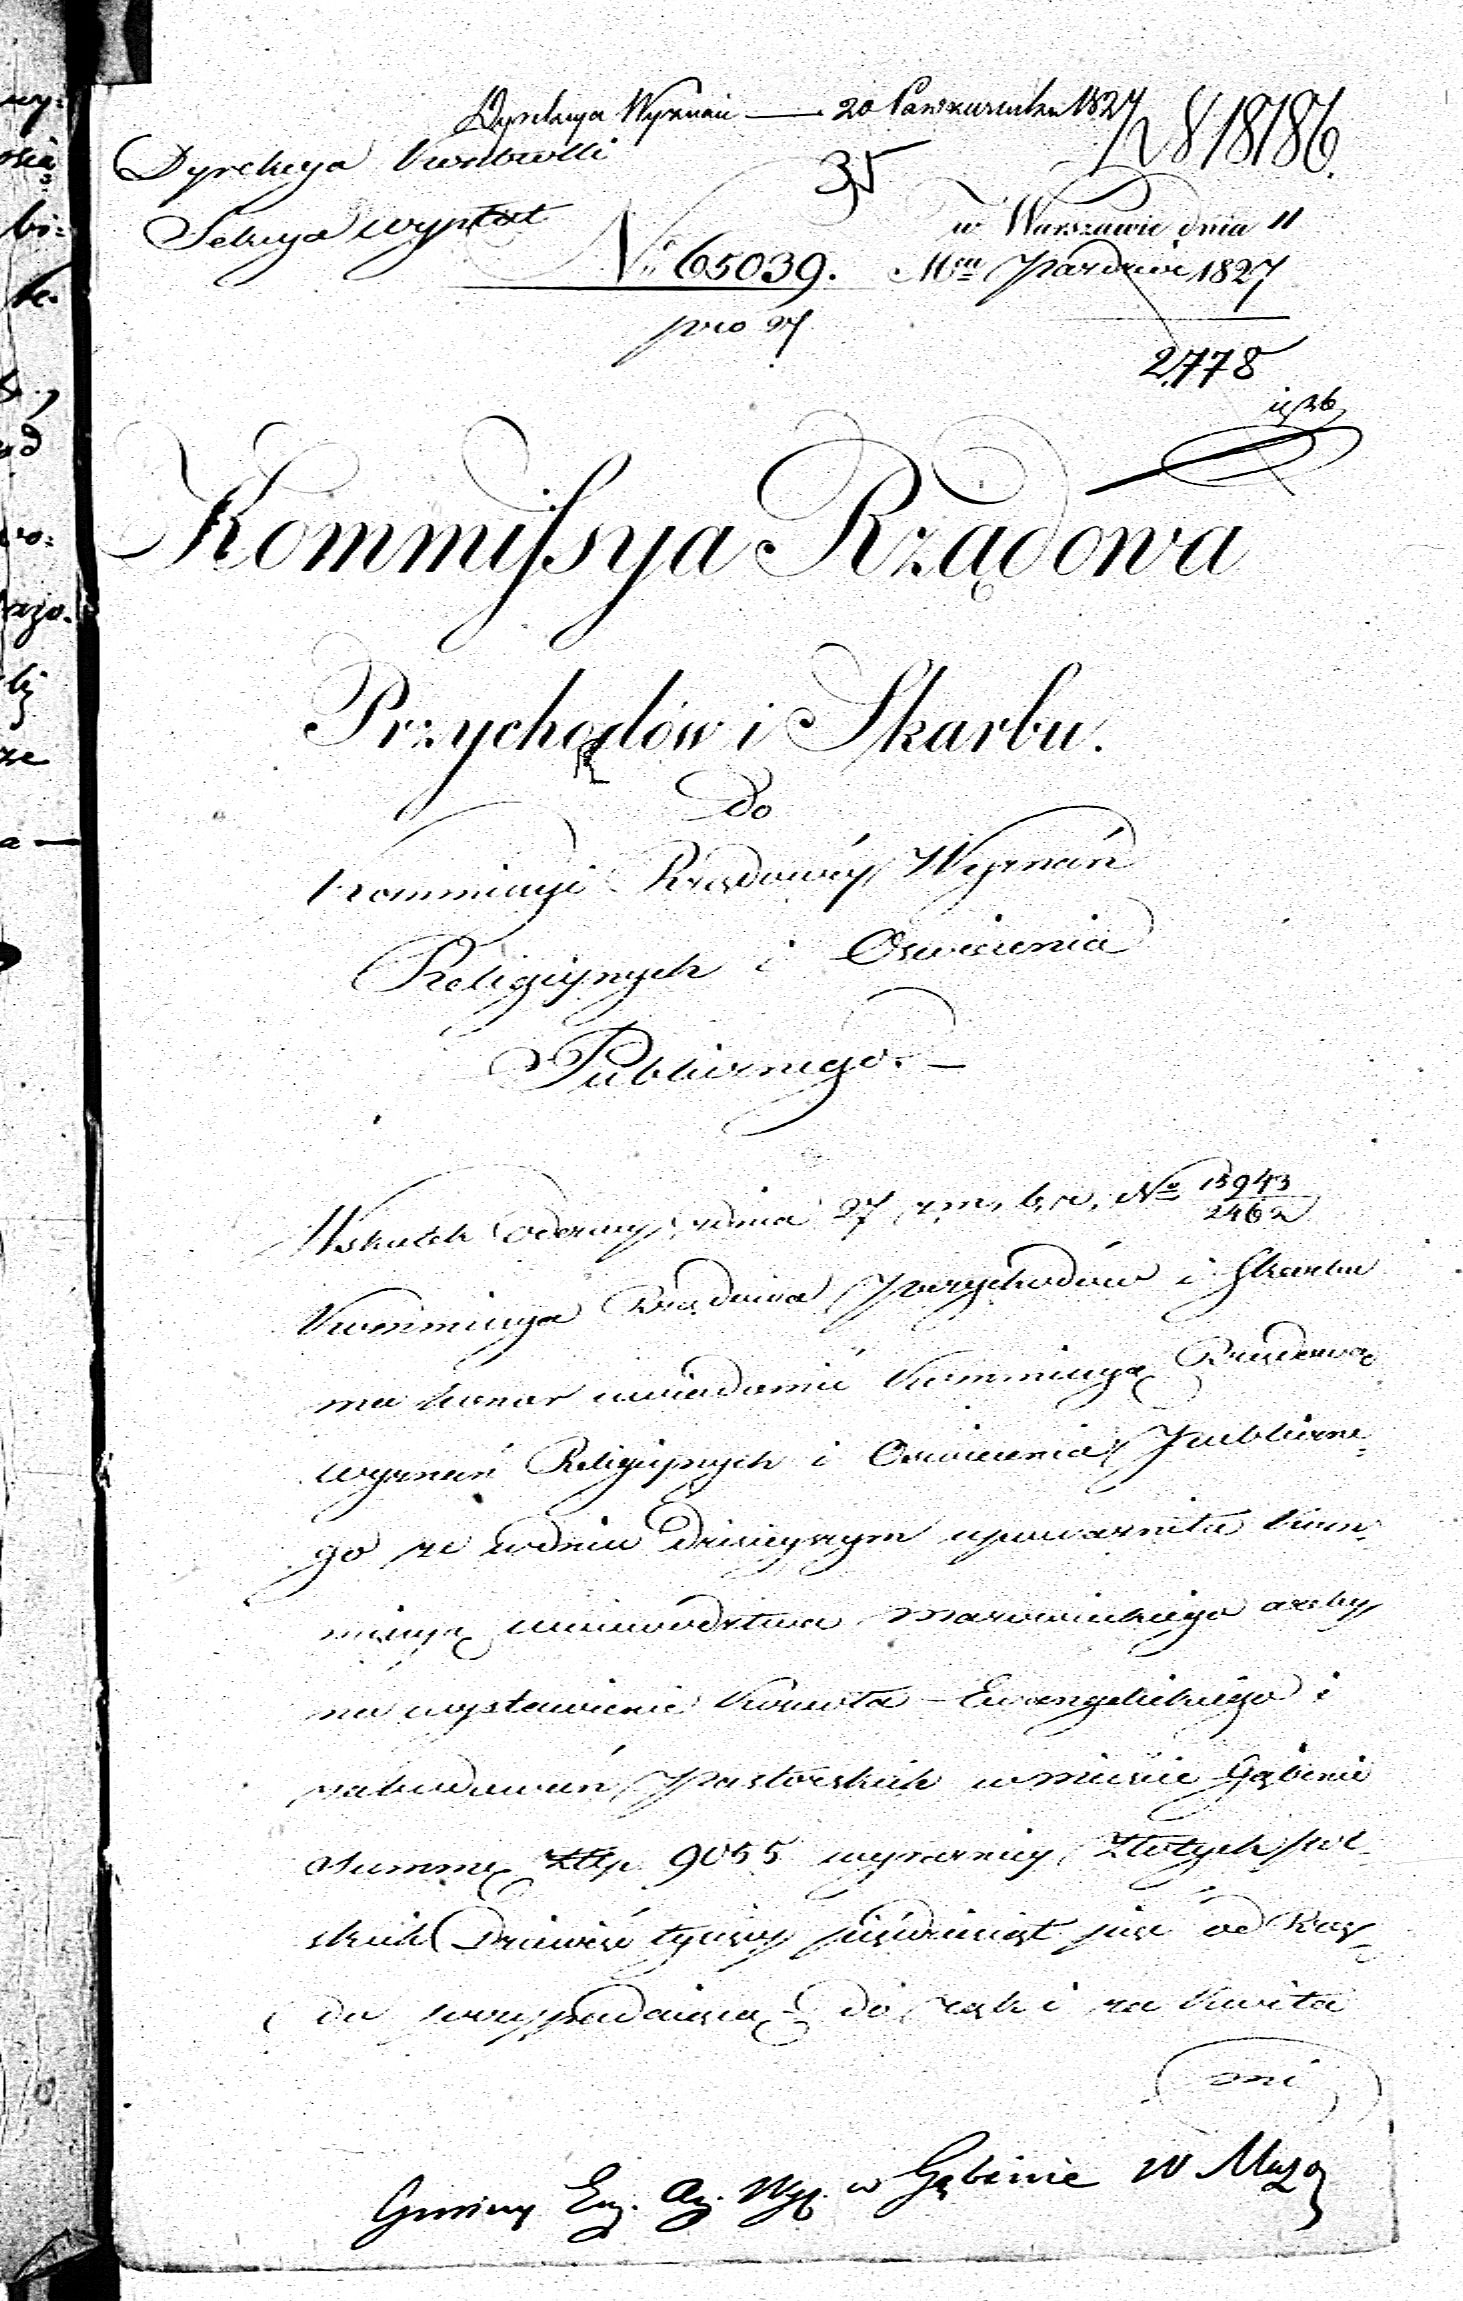 Dyrekcya Wyznań — 20 Pazdziernika 1827
N 18186.
Dyrekcya Kontrolli
35
Sekcya wypłat
w Warszawie dnia 11
No 65039. Mca Pazdzier 1827
pro 27
2778
Kommissya Rządowa
Przychodów i Skarbu.
Do
Kommissyi Rządowéy Wyznań
Religiynych i Oswiecenia
Publicznego. —
W skutek Odezwy z dnia 27 z. m. b. r. No 15943/2462
Kommissya Rządowa Przychodów i Skarbu
ma honor uwiadomić Kommissyą Rządową
wyznań Religiynych i Oswiecenia Publiczne-
go że w dniu dzisieyszym upoważniła Kom-
missyą woiewództwa Mazowieckiego ażeby
na wystawienie Kościoła Ewangelickiego i
zabudowań Pastorskich w mieście Gąbinie
Summę Złp 9055 wyraźniey Złotych pol-
skich Dziewięć tysięcy pięćdziesiąt pięć od Rzą-
du przypadaiącą do rąk i za kwita
mi
Gminy Ew. Au. Wyz. w Gąbinie W Mazo